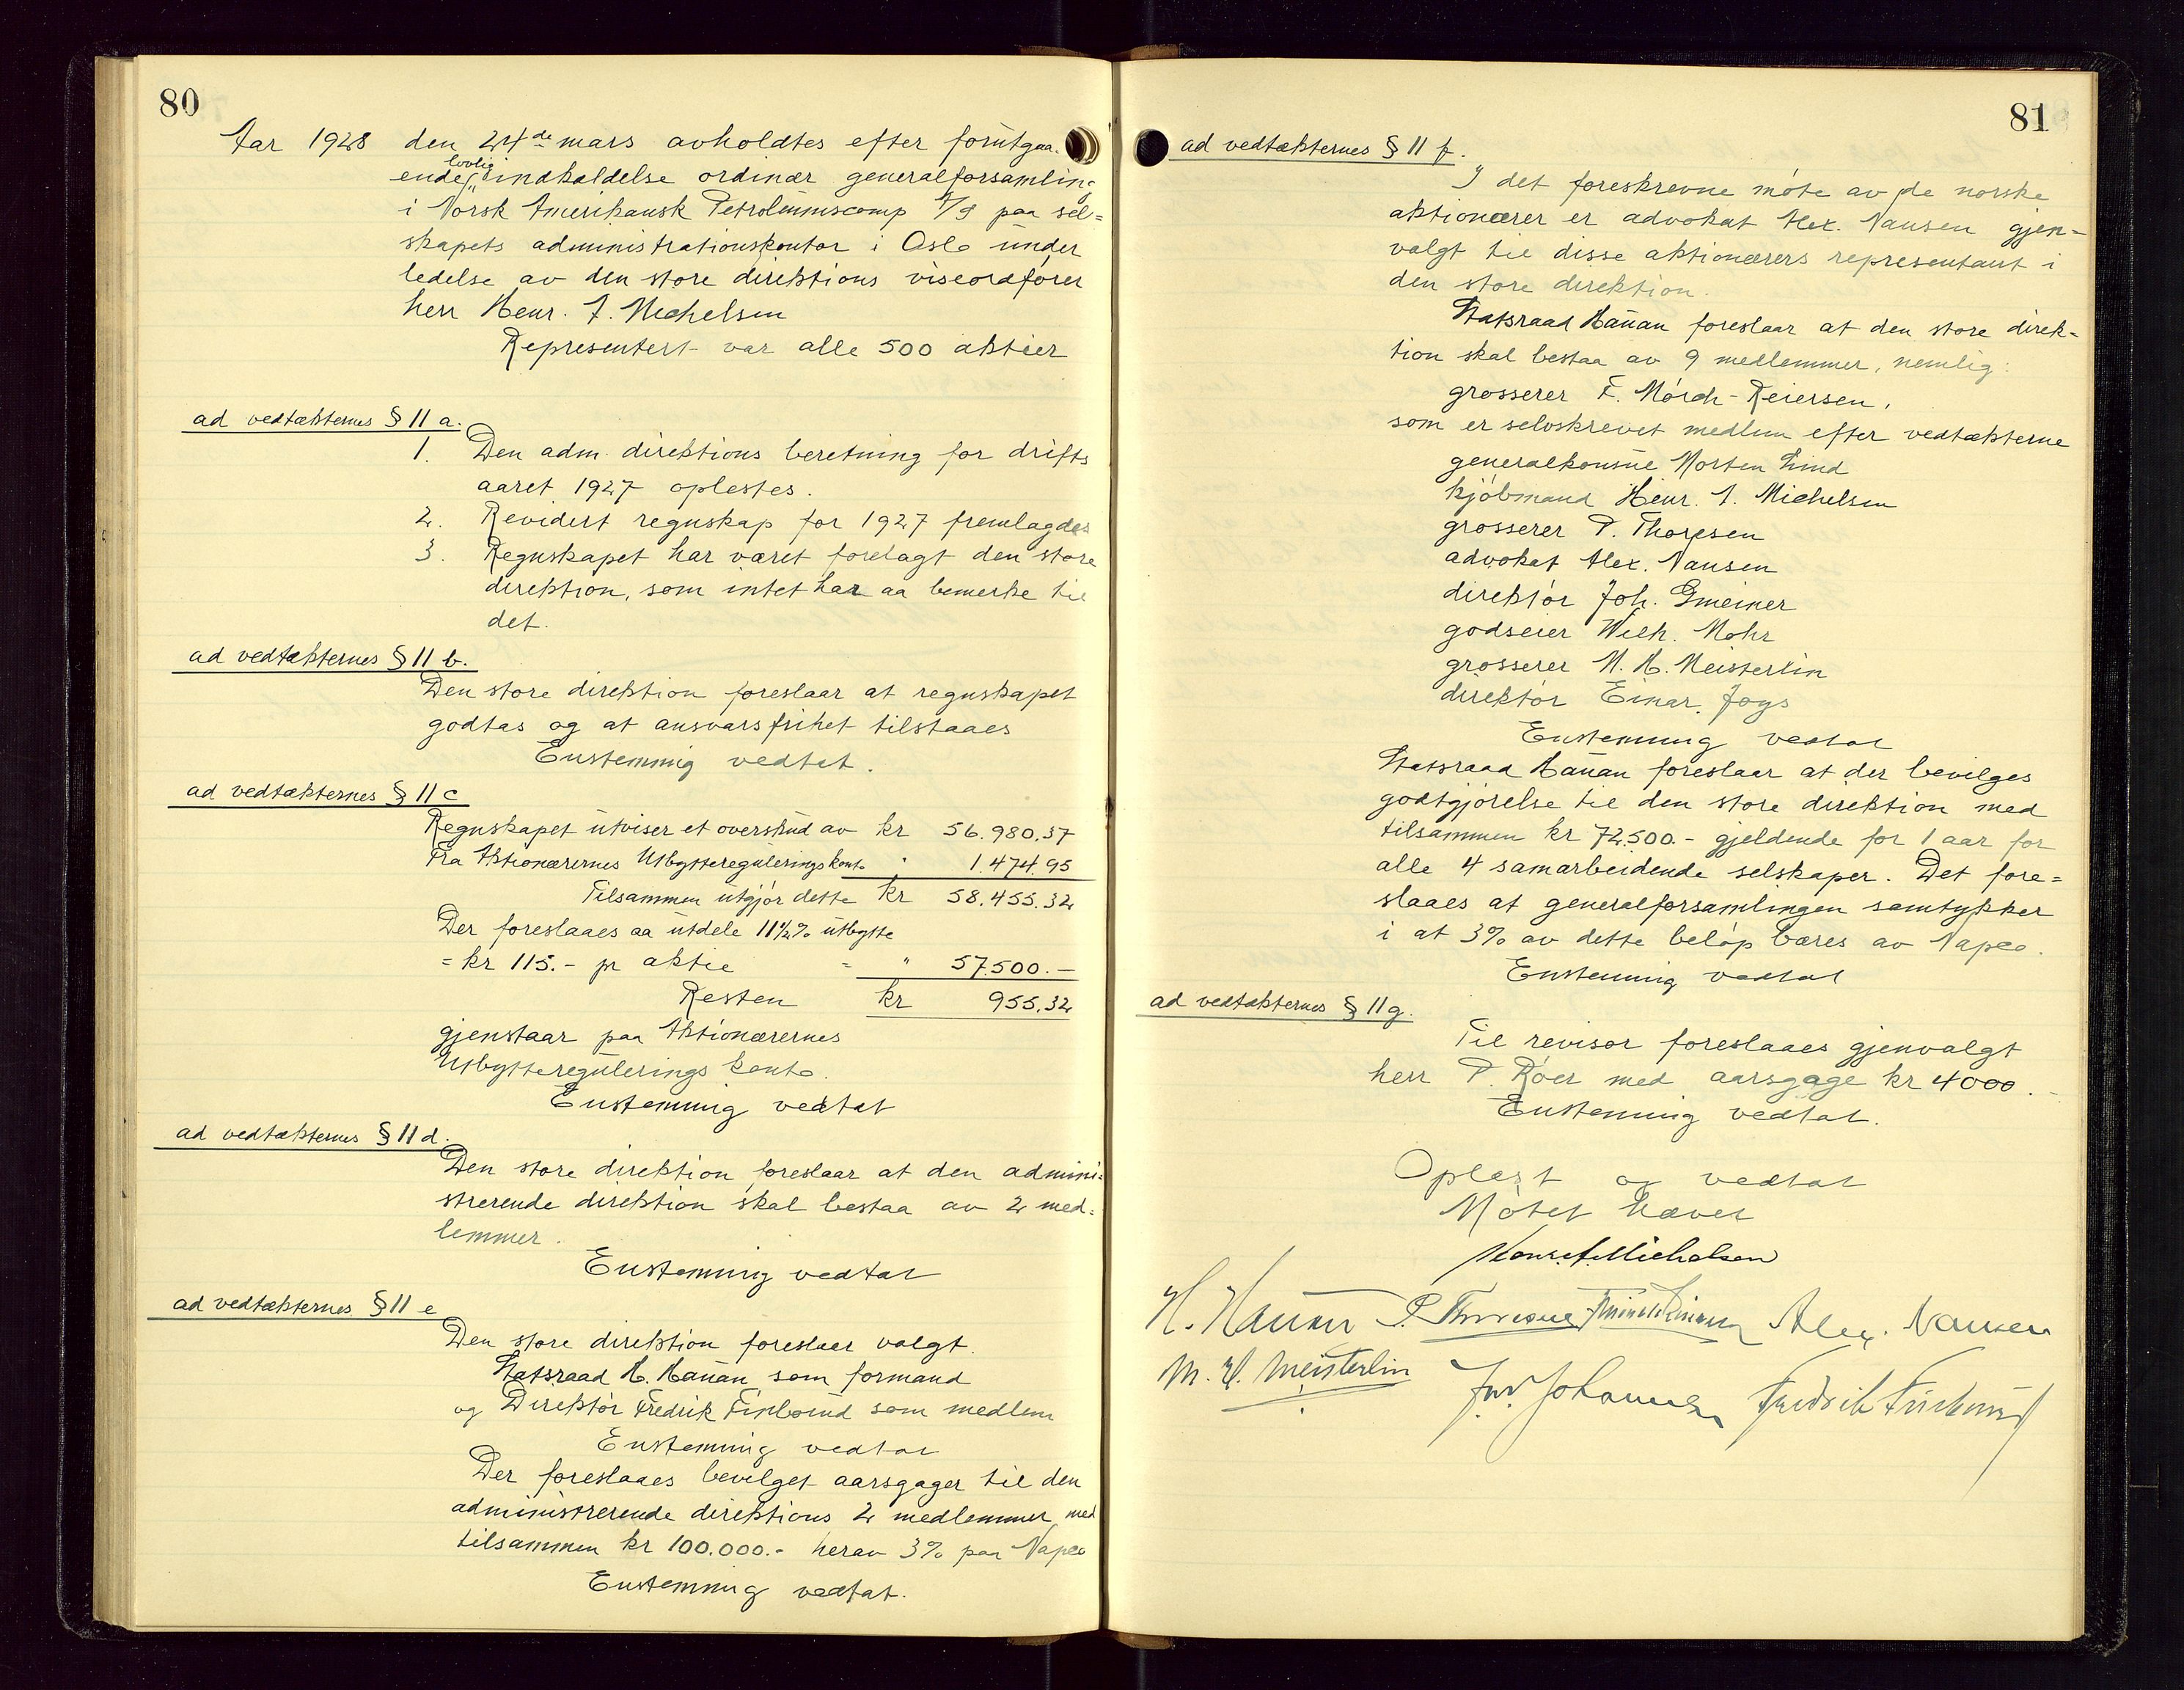 80
Aar 1928 den 24de mars avholdtes efter forutgaa-
ende lovlig indkaldelse ordinær generalforsamling
i Norsk Amerikansk Petroleumscomp A/S paa sel=
skapets administrationskontor i Oslo under
ledelse av den store direktions viseordfører
herr Henr. J. Michelsen
Representert var alle 500 aktier
ad vedtækternes § 11 a.
1. Den adm. direktions beretning for drifts
aaret 1927 oplestes.
2. Revidert regnskap for 1927 fremlagdes
3. Regnskapet har været forelagt den store
direktion, som intet har aa bemerke til
det.
ad vedtækternes § 11 b.
Den store direktion foreslaar at regnskapet
godtas og at ansvarsfrihet tilstaaes
Enstemmig vedtat.
ad vedtækternes § 11 c
Regnskapet utviser et overskud av kr 56.980,37
Fra Aktionærernes Utbyttereguleringskonto " 1.474.95
Tilsammen utgjør dette kr 58.455.32
Der foreslaaes aa utdele 11½% utbytte
= kr 115.- pr aktie = " 57.500.-
Resten kr 955,32
gjenstaar paa Aktionærernes
Utbyttereguleringskonto.
Enstemmig vedtat
ad vedtækternes § 11 d.
Den store direktion foreslaar at den admini=
strerende direktion skal bestaa av 2 med=
lemmer.
Enstemmig vedtat
ad vedtækternes § 11 e
Den store direktion foreslaar valgt.
Statsraad H. Hauan som formand
og Direktør Fredrik Finborud som medlem
Enstemmig vedtat
Der foreslaaes bevilget aarsgager til den
administrerende direktions 2 medlemmer med
tilsammen kr 100.000.- herav 3% paa Napco
Enstemmig vedtat.
81
ad vedtækternes § 11 f.
I det foreskrevne møte av de norske
aktionærer er advokat Alex. Nansen gjen=
valgt til disse aktionærers representant i
den store direktion.
Statsraad Hauan foreslaar at den store direk=
tion skal bestaa av 9 medlemmer, nemlig:
grosserer F. Mørch-Reiersen,
som er selvskrevet medlem efter vedtækterne
generalkonsul Morten Lind
kjøbmand Henr. J. Michelsen
grosserer P. Thoresen
advokat Alex. Nansen
direktør Joh. Gmeiner
godseier Wilh. Mohr
grosserer M. H. Meisterlin
direktør Einar Joys
Enstemmig vedtat
Statsraad Hauan foreslaar at der bevilges
godtgjørelse til den store direktion med
tilsammen kr 72.500.- gjeldende for 1 aar for
alle 4 samarbeidende selskaper. Det fore=
slaaes at generalforsamlingen samtykker
i at 3% av dette beløp bæres av Napco.
Enstemmig vedtat
ad vedtækternes § 11 g.
Til revisor foreslaaes gjenvalgt
herr P. Röer med aarsgage kr 4000.-
Enstemmig vedtat.
Oplest og vedtat
Møtet hævet
Henr. J. Michelsen
H. Hauan P. Thoresen Alex. Nansen
M. H. Meisterlin Fredrik Finborud